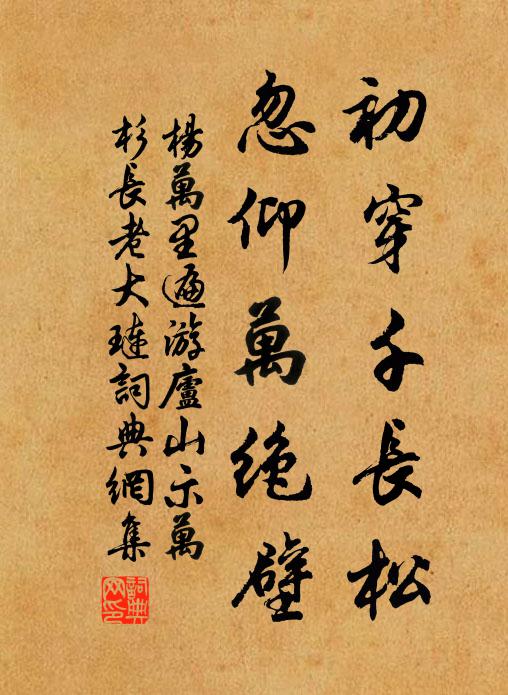 初穿千長松
忽仰萬絶壁
楊萬里遍游廬山示萬
杉長老大璉詞典網集
詞典网印